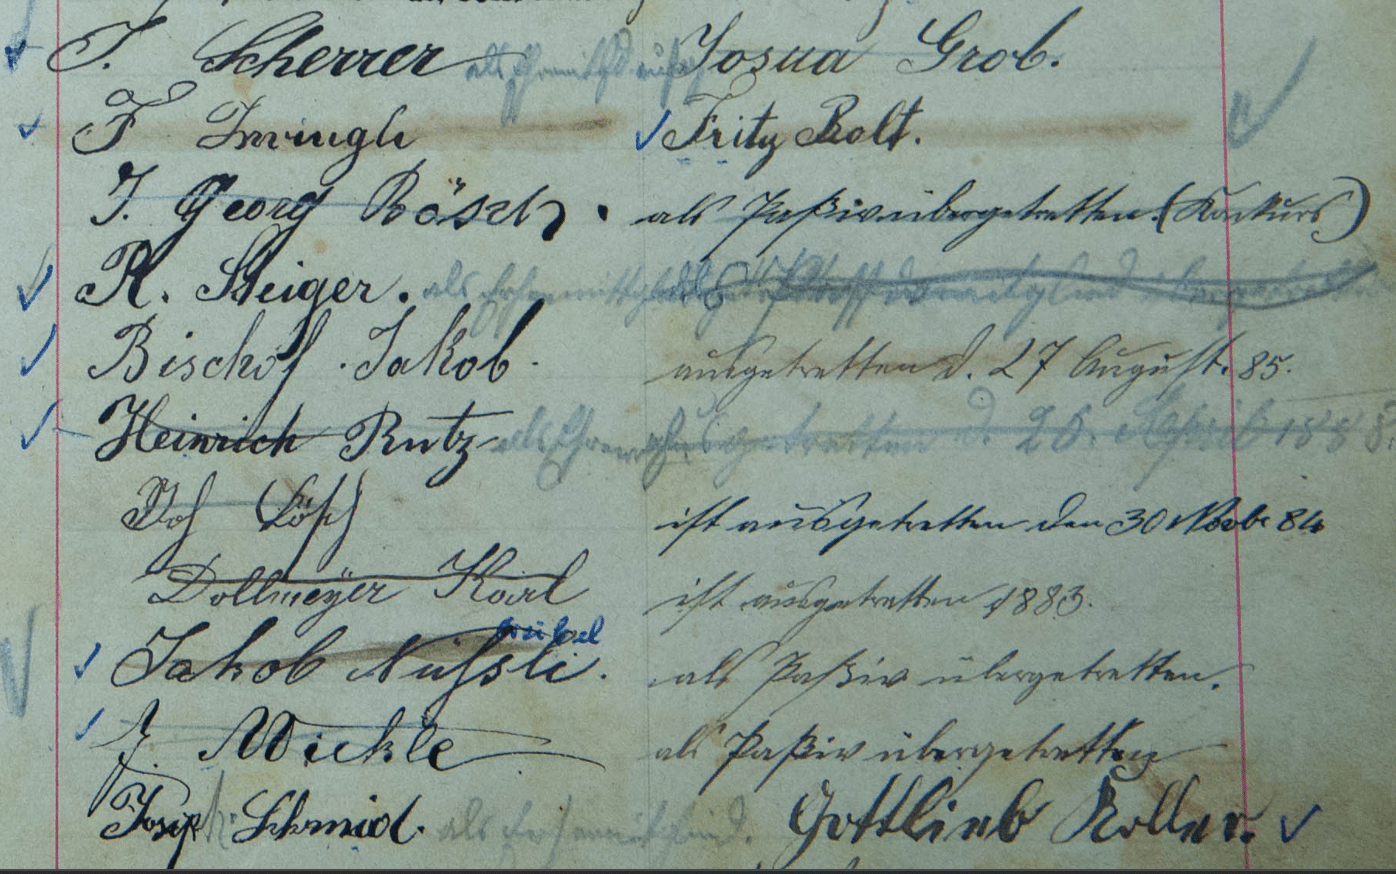 J. Scherrer als Ehrenmitgld Josua Grob.
F Zwingli Fritz Bolt.
J. Georg Bösch. als Paßiv übergetretten. (Konkurs)
R. Steiger. als Ehrenmitglied
Bischof Jakob. ausgetretten d. 27 August. 85.
Heinrich Rutz als Ehren ausgetretten d. 26. April 188
Joh Lösch ist ausgetretten den 30 Novbr 84
Dollmeÿer Karl ist ausgetretten 1883.
Jakob Nüfsli. als Paßiv übergetretten.
J. Wickle als Paßiv übergetretten
Josef Schmid. als Ehrenmitglied. Gottlieb Koller.